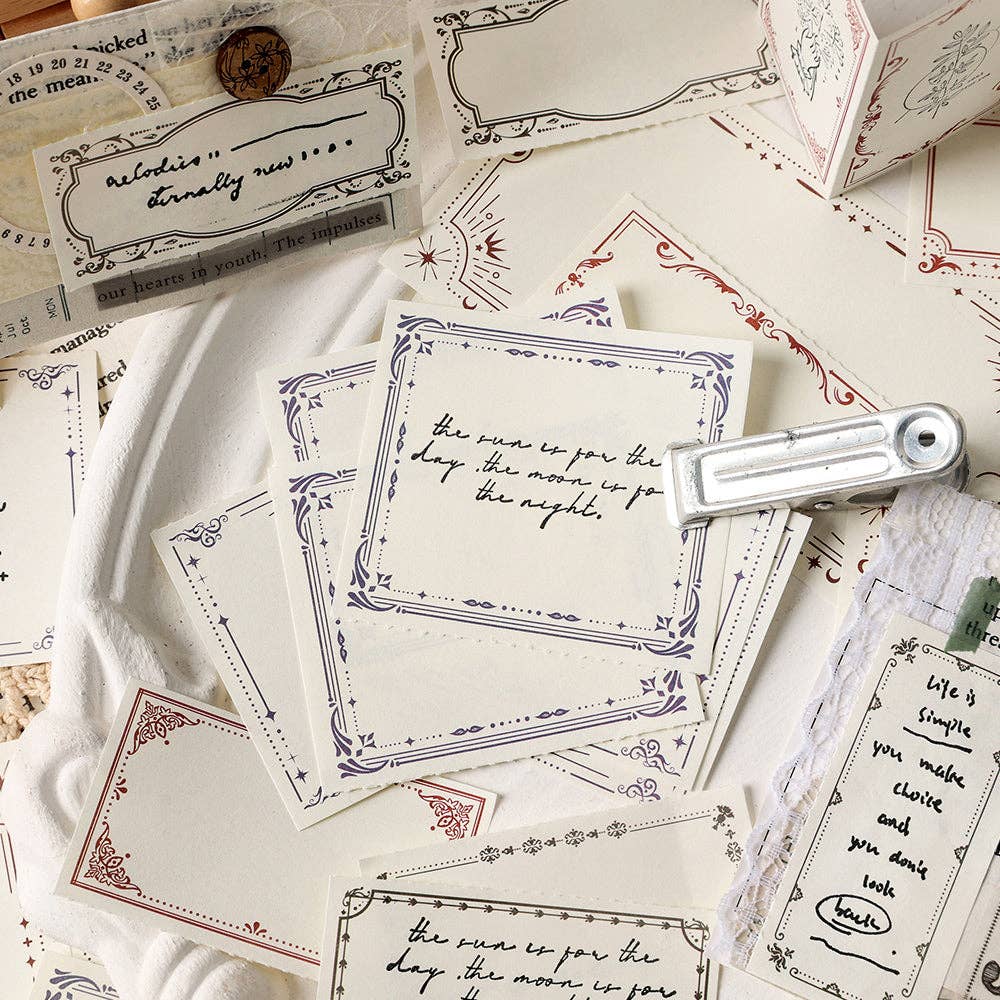 picked
her photo
the mean
she
18 19 20 21 22 23 24 25
melodies"
eternally new . . . .
our hearts in youth. The impulses
9 8 7 6
Jul
Oct
MON
managed
red
the sun is for the
day .the moon is fo
the night.
up
three
Life is
simple
you make
choice
and
you don't
look
back
the sun is for the
day .the moon is for